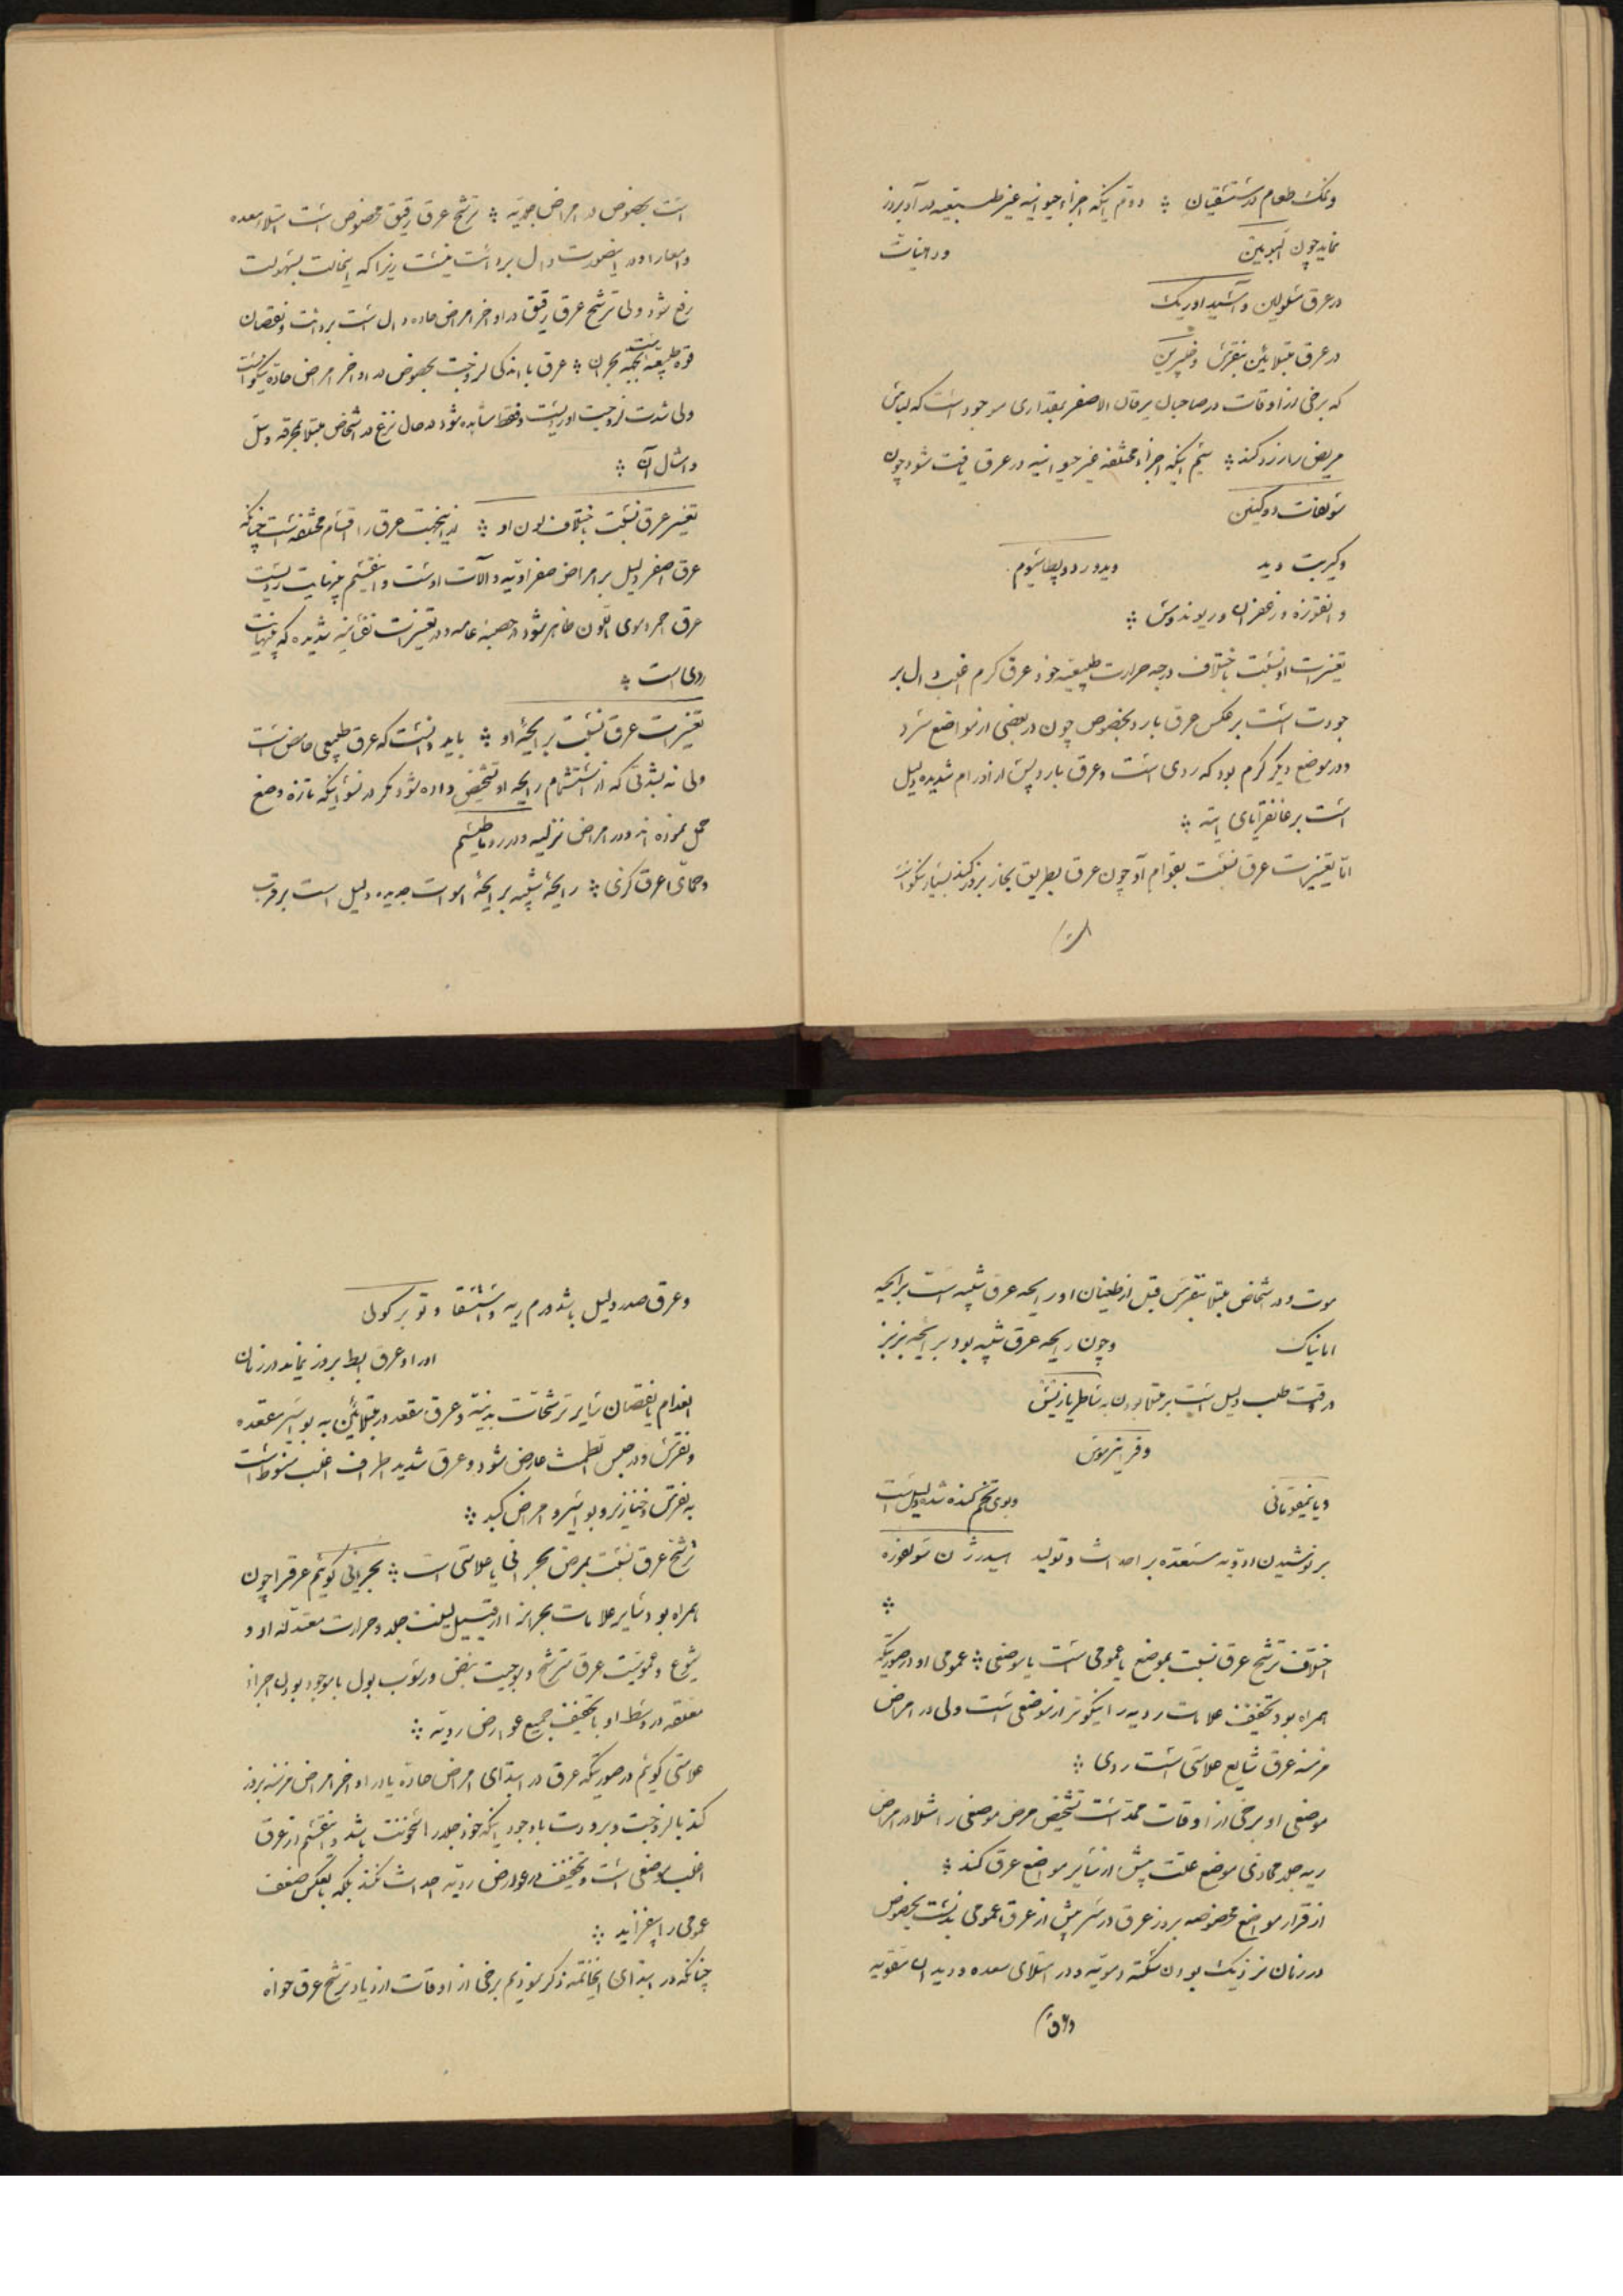 ونمک طعام در مستسقیان ؞ دوّم اینکه اجزاء حیوانیه غیر طبیعیه در آن بروز
نماید چون البومین در حمیات
در عرق مسلولین و آسید اوریک
در عرق مبتلایین بنقرس و خنازیر
که برخی از اوقات در صاحبان یرقان الاصفر بمقداری موجود است که لباس
مریض را زرد کند ؞ سیّم اینکه اجزاء مختلفه غیر حیوانیه در عرق یافت شود چون
سولفات دوکینین
وکبریت وید ویدور دو پطاسیوم
و انقوزه و زعفران و ریوند و مس ؞
تغییرات او نسبت باختلاف درجه حرارت طبیعیه خود عرق گرم اغلب دال بر
جودت است برعکس عرق بارد بخصوص چون در بعضی از مواضع سرد
و در موضع دیگر گرم بود که ردی است و عرق بارد پس از اورام شدیده دلیل
است بر غانقرایای اینه ؞
امّا تغییرات عرق نسبت بقوام آن چون عرق بطریق بخار بروز کند بسیار نیکو است
است بخصوص در امراض جلدیّه ؞ ترشّح عرق رقیق مخصوص است امتلاء معده
و امعا را و در اینصورت دال بر دائت نیست زیرا که اینحالت بسهولت
رفع شود ولی ترشّح عرق رقیق در اواخر امراض حاده دال است بردائت و نقصان
قوه طبیعیه بجهة بحران ؞ عرق با اندکی لزوجت بخصوص در اواخر امراض حادّه نیکو است
ولی شدت لزوجت او ردیست و فقط مشاهده شود در حال نزع در اشخاص مبتلا بمحرقه و سلّ
و امثال آن ؞
تغییر عرق نسبت باختلاف لون او ؞ از اینجهت عرق را اقسام مختلفه است چنانکه
عرق اصفر دلیل بر امراض صفراویّه و آلات اوست و اینقسم بغایت ردیست
عرق احمر دموی اللون ظاهر شود در حصبهٔ عامه و در تغییرات نفسانیه شدیده که بینهایت
ردی است ؞
تغییرات عرق نسبت برایحهٔ او ؞ باید دانست که عرق طبیعی حامض است
ولی نه بشدّتی که از استشمام رایحه او تشخیص داده شود مگر در نسوانیکه تازه وضع
حمل نموده اند و در امراض نزلیه و در روماطیسم
و حمّای عرق گزی ؞ رایحهٔ شبیه برایحهٔ اموات جدیده دلیل است بر قرب
موت و در اشخاص مبتلا بنقرس قبل از طغیان او رایحه عرق شبیه است برایحه
امانیاک و چون رایحه عرق شبیه بود برایحه بزبز
در وقت طلب دلیل است بر مبتلا بودن به
و بوی تخم گندیده دلیل است
بر نوشیدن ادویه مستعدّه بر احداث و تولید اسیدرژن سولفوره
؞
اختلاف ترشّح عرق نسبت بموضع یا عمومی است یا موضعی ؞ عمومی او در صورتیکه
همراه بود بتخفیف علامات ردیه را نیکوتر از موضعی است ولی در امراض
مزمنه عرق شایع علامتی است ردی ؞
موضعی او برخی از اوقات ممدّ است تشخیص مرض موضعی را مثلا در امراض
ریه جلد محاذی موضع علت بیش از سایر مواضع عرق کند ؞
از قرار مواضع مخصوصه بروز عرق در سر بیش از عرق عمومی بد نیست بخصوص
در زنان نزدیک بودن سکته دمویّه و در امتلای معده و دیدان معویّه
و عرق صدر دلیل باشد ورم ریه و استسقا و توبرکولی
او را و عرق ابط بروز نماید در زمان
انعدام یا نقصان سایر ترشّحات بدنیّه و عرق مقعد در مبتلایین به بواسیر مقعده
و نقرس و در حبس الطمث عارض شود و عرق شدید اطراف اغلب منوط است
به نقرس و خنازیر و بواسیر و امراض کبد ؞
ترشّح عرق نسبت بمرض بحرانی یا علامتی است ؞ بحرانی گوئیم عرقرا چون
همراه بود سایر علامات بحرانرا از قبیل لینت جلد و حرارت معتدله او و
شیوع و عمومیّت عرق مترشّح و موجیت نبض و رسوب بول با موجود بودن اجزاء
معلّقه در وسط او با تخفیف جمیع عوارض ردیّه ؞
علامتی گوئیم در صورتیکه عرق در ابتدای امراض حادّه یا در اواخر امراض مزمنه بروز
کند با لزوجت و برودت با وجود اینکه خود جلد را سخونت باشد و اینقسم از عرق
اغلب موضعی است و تخفیف در عوارض ردیّه احداث نکند بلکه بالعکس ضعف
عمومی را بیفزاید ؞
چنانکه در ابتدای اینخاتمه ذکر نمودیم برخی از اوقات ازدیاد ترشّح عرق خواه